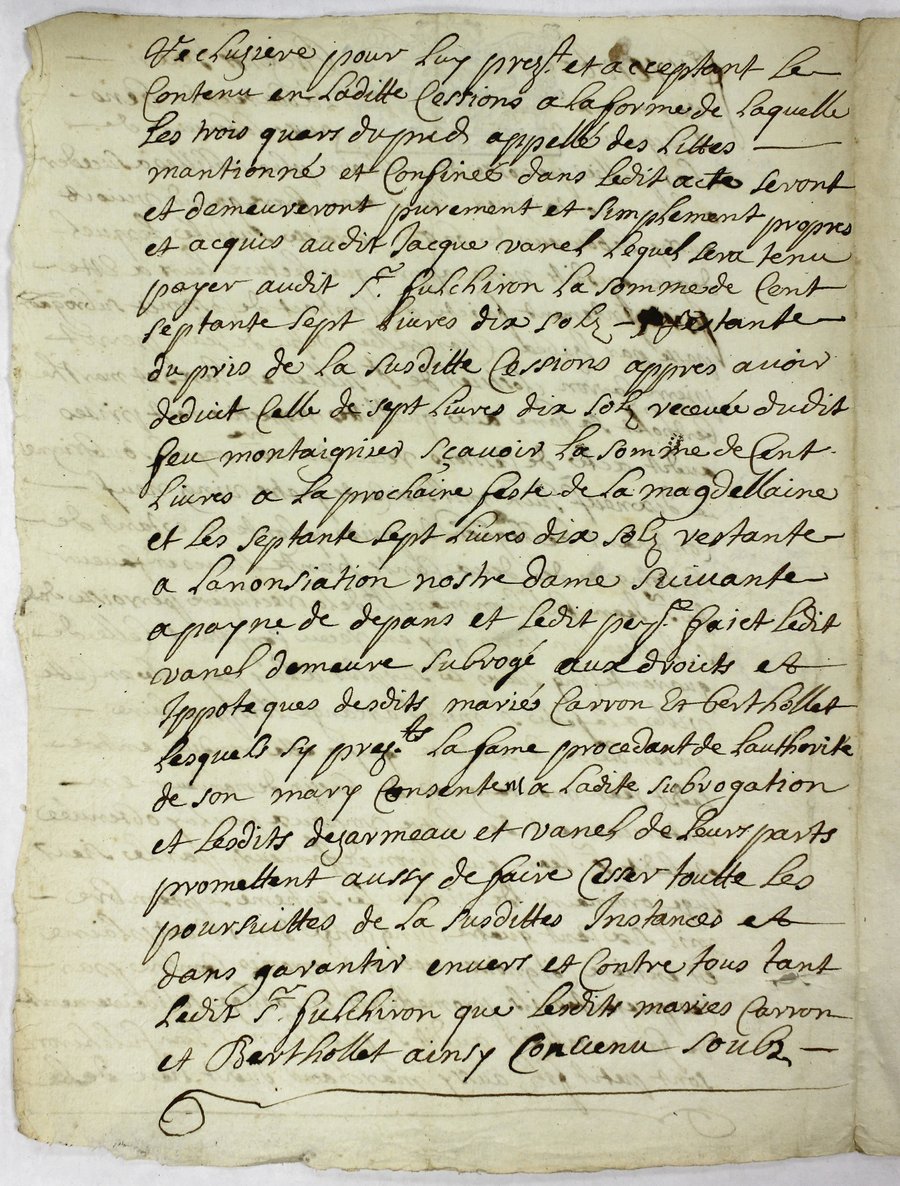 Veclugiere pour luy prez.t et acceptant le
Contenu en Laditte Cessions a la forme de Laquelle
Les trois quars du pred appellé des Littes
mantionné et Confinée dans ledit acte seront
et demeureront purement et simplement propres
et acquis audit Jacque vanel lequel sera tenu
payer audit S.r fulchiron La somme de Cent
septante sept Livres dix solz restante
du pris de La susditte Cessions appres avoir
deduit Celle de sept Livres dix solz receuée dudit
feu montaignier sçavoir La somme de Cent
Livres a La prochaine feste de La magdellaine
et Les septante sept Livres dix solz restante
a Lanonsiation nostre dame suivante
a payne de depans et ledit faict ledit
vanel demeure subrogé aux droicts et
Ippoteques desdits mariés Carron Et berthollet
Lesquels sy prez.ts La fame procedant de Lauthorite
de son mary Consentent a Ladite subrogation
et Lesdits dezarmeau et vanel de leurs parts
promettent aussy de faire Cesser toutte Les
poursuittes de La susdittes Instances et
dans garantir envers et Contre tous tant
Ledit S.r fulchiron que lesdits maries Carron
et Berthollet ainsy Convenu soubz